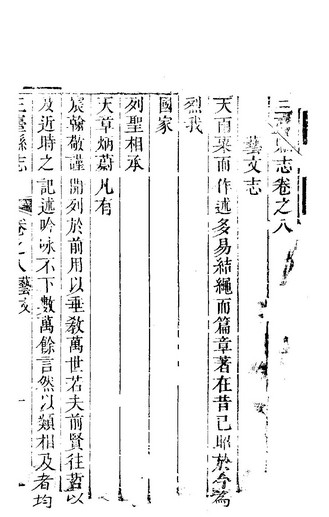 三臺縣志卷之八
藝文志
天百栗而作述多易結繩而篇章著在昔已昭於今為
烈我
國家
列聖相承
天章炳蔚凡有
宸翰敬謹開列於前用以垂教萬世若夫前賢往哲以
及近時之記述吟咏不下數萬餘言然以類相及者均
三臺縣志 卷之八藝文 一